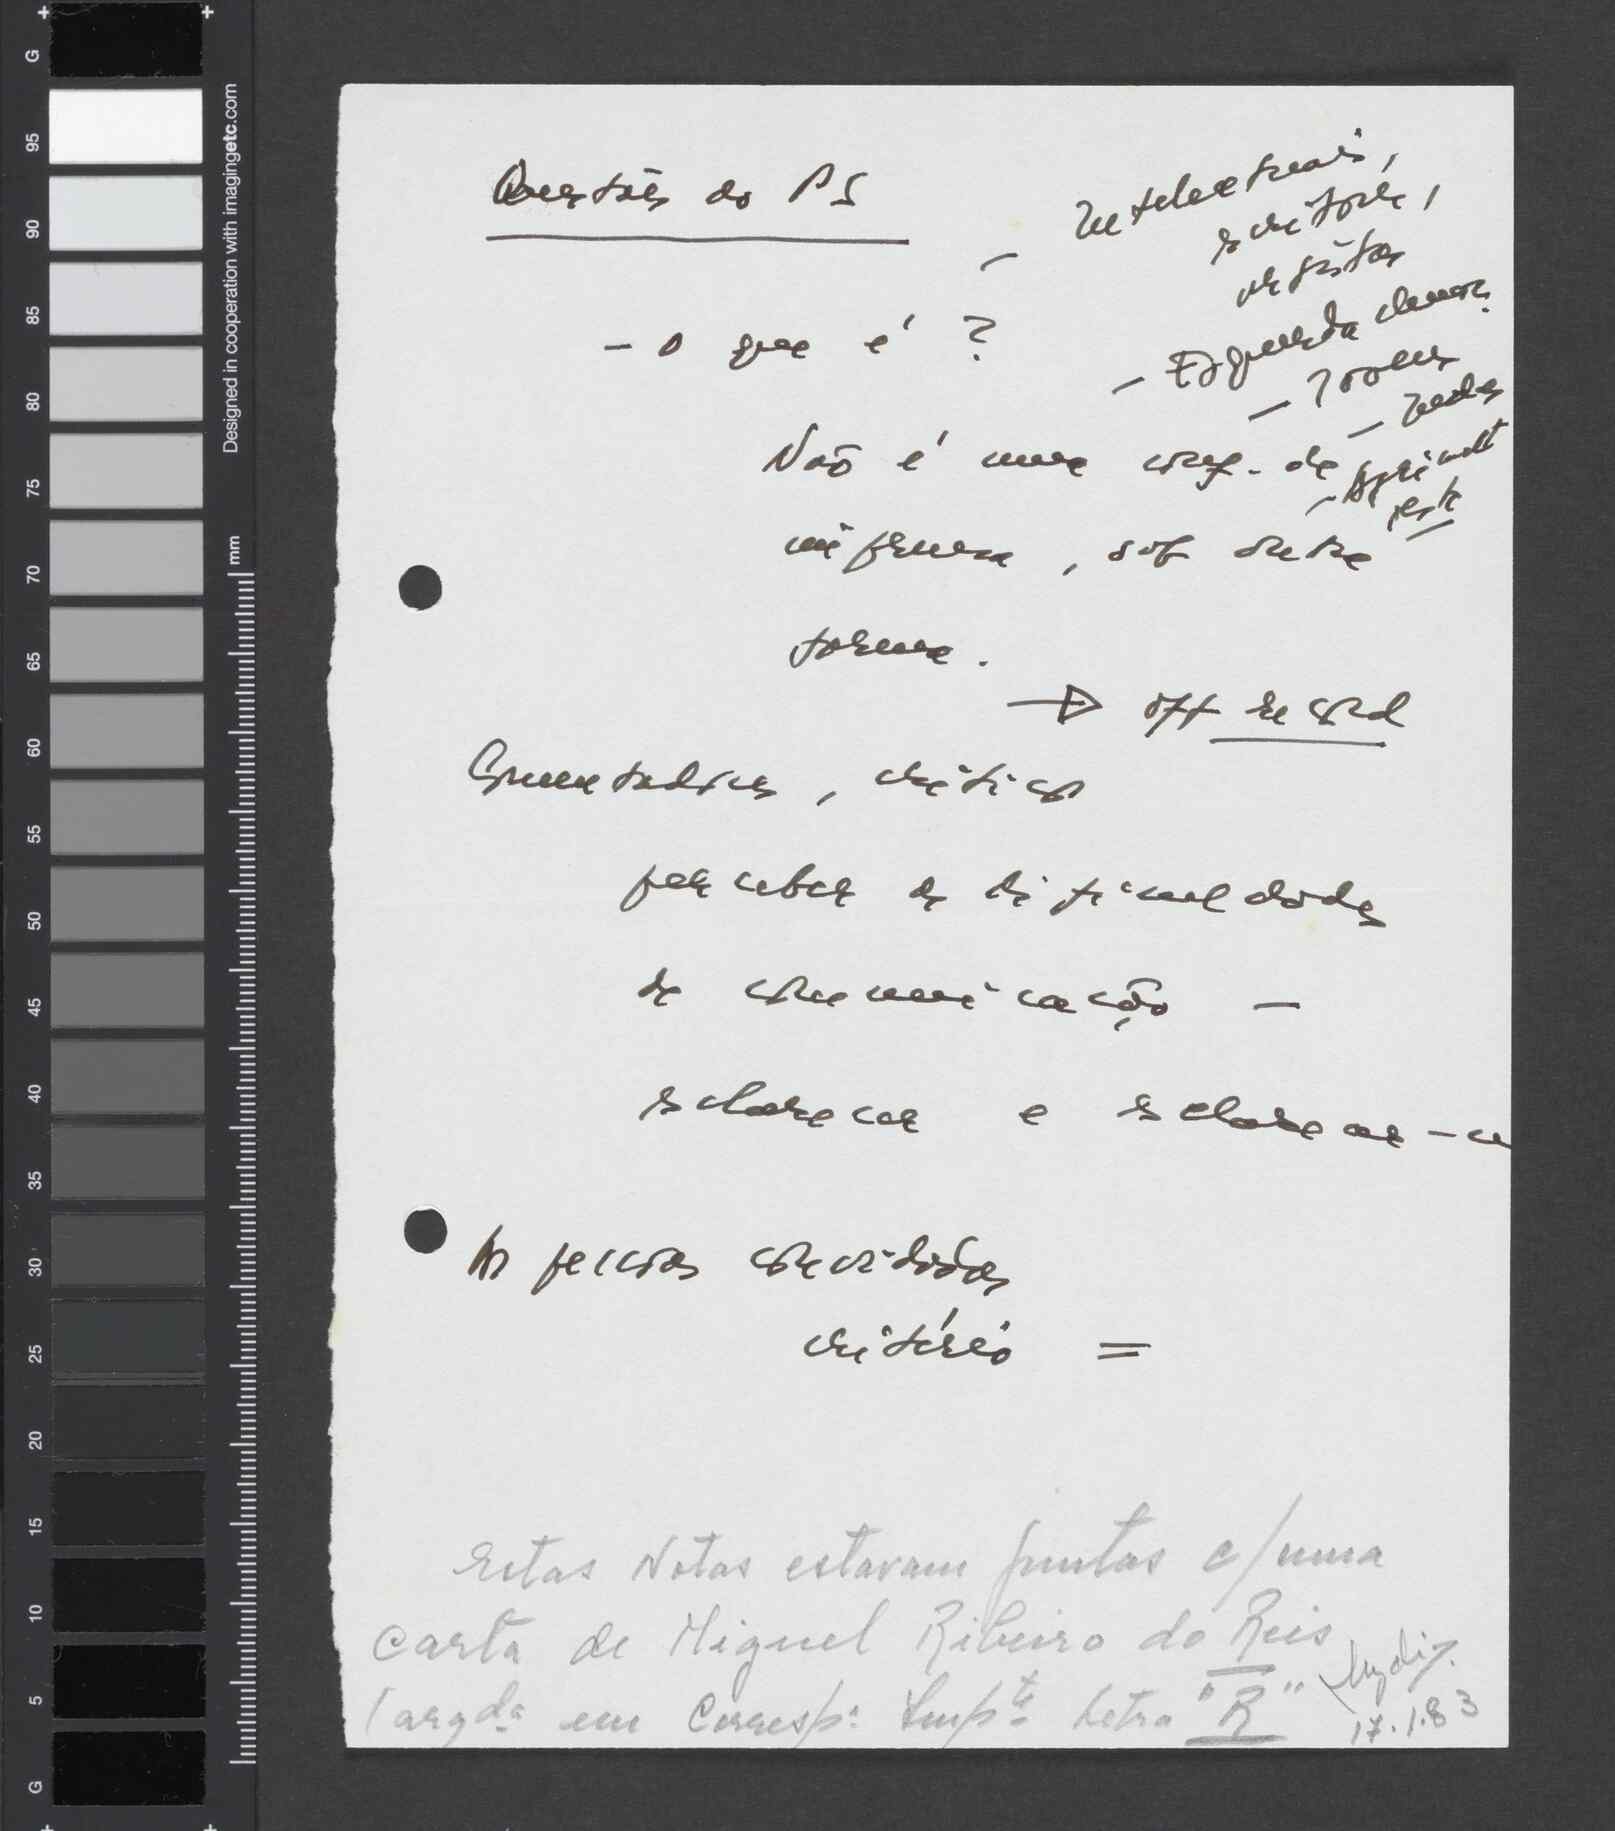 G
95
90
85
80
75
70
65
60
55
50
45
40
35
30
25
20
15
10
5
G
Designed in cooperation with imagingetc.com
mm
Questões do PS
- Intelectuais,
escritores,
artistas
- Esquerda
- o que é ?
Não é uma conf. de
imprensa, sob outra
forma.
→ off record
Comentadores, críticos
perceber as dificuldades
de comunicação -
esclarecer e esclarecer-se
As pessoas convidadas
critério =
Estas Notas estavam juntas c/uma
carta de Miguel Ribeiro do Reis
(arqda em Corresp. Imptе Letra "R"
17.1.83